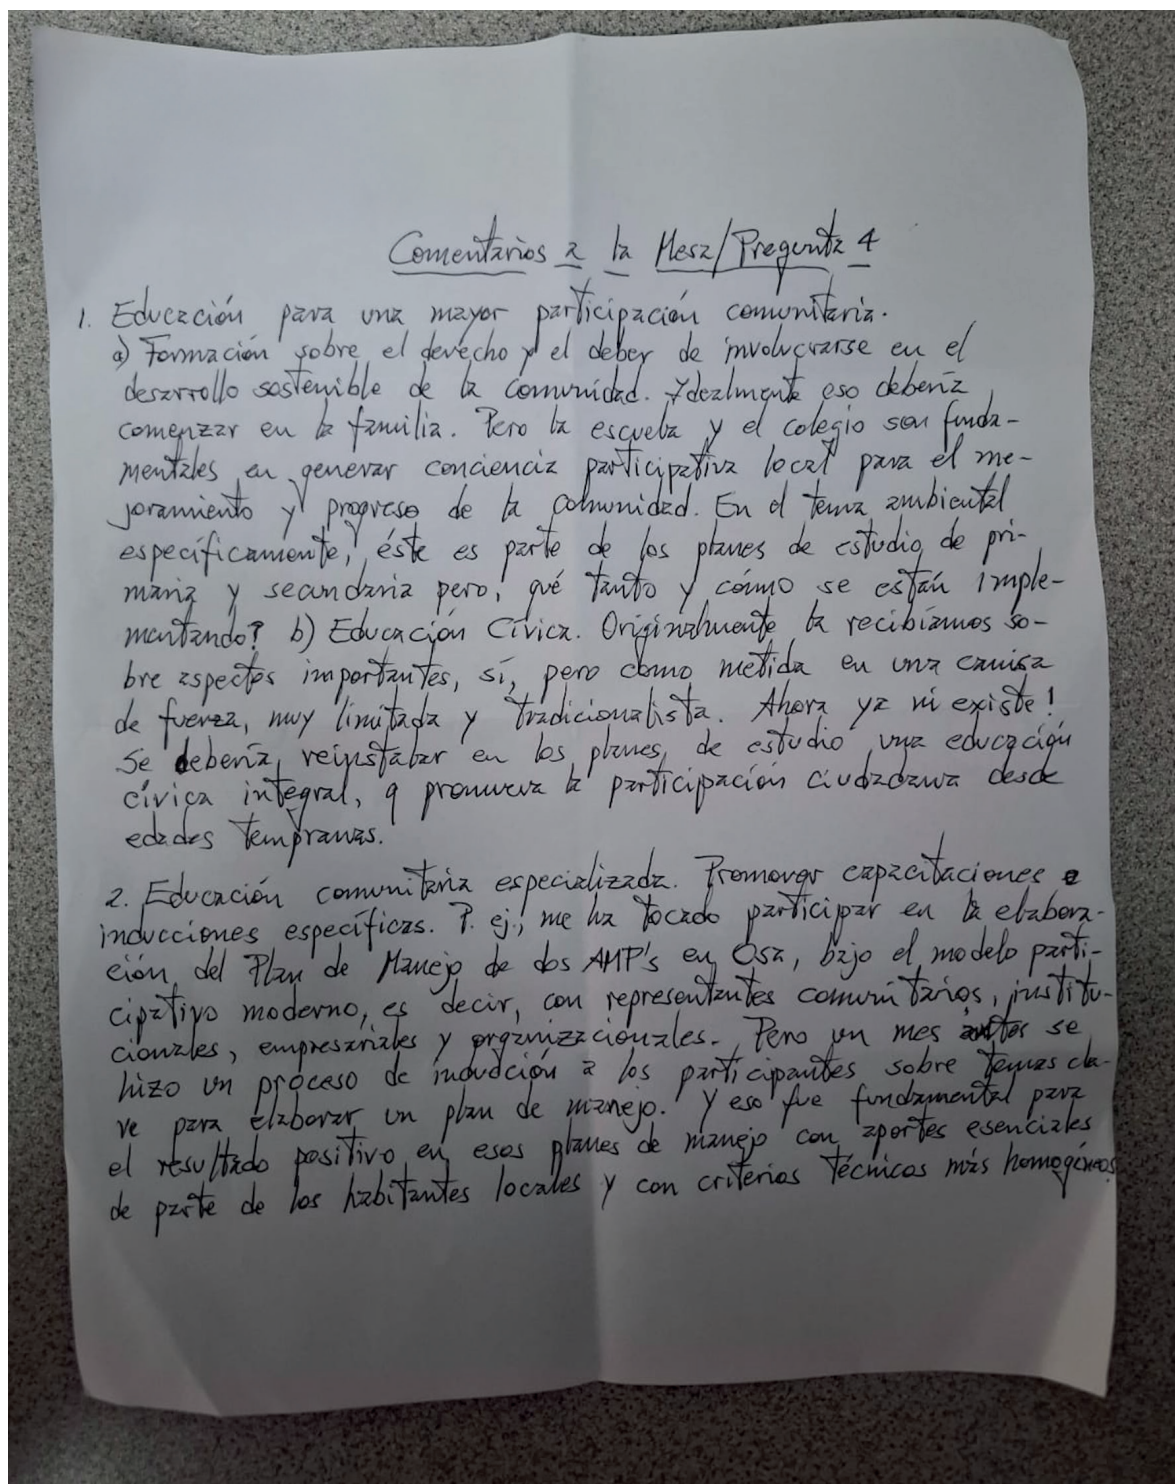 Comentarios a la Mesa/Pregunta 4
1. Educación para una mayor participación comunitaria.
a) Formación sobre el derecho y el deber de involucrarse en el
desarrollo sostenible de la comunidad. Idealmente eso debería
comenzar en la familia. Pero la escuela y el colegio son funda-
mentales en generar conciencia participativa local para el me-
joramiento y progreso de la comunidad. En el tema ambiental
específicamente, éste es parte de los planes de estudio de pri-
maria y secundaria pero, qué tanto y cómo se están imple-
mentando? b) Educación Cívica. Originalmente la recibíamos so-
bre aspectos importantes, sí, pero como metida en una camisa
de fuerza, muy limitada y tradicionalista. Ahora ya ni existe!
Se debería reinstalar en los planes de estudio una educación
cívica integral, q promueva la participación ciudadana desde
edades tempranas.
2. Educación comunitaria especializada. Promover capacitaciones e
inducciones específicas. P. ej., me ha tocado participar en la elabora-
ción del Plan de Manejo de dos AMP's en Osa, bajo el modelo parti-
cipativo moderno, es decir, con representantes comunitarios, institu-
cionales, empresariales y organizacionales. Pero un mes antes se
hizo un proceso de inducción a los participantes sobre temas cla-
ve para elaborar un plan de manejo. Y eso fue fundamental para
el resultado positivo en esos planes de manejo con aportes esenciales
de parte de los habitantes locales y con criterios técnicos más homogéneos.